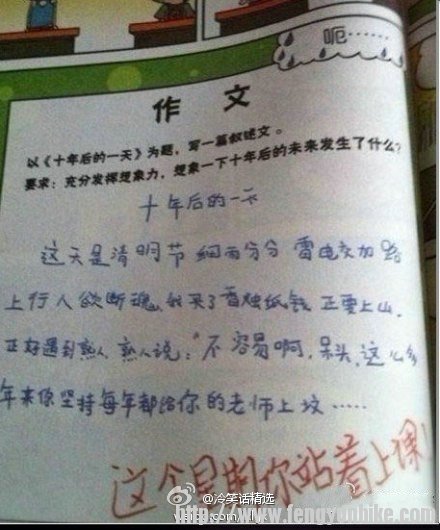 呃……
作 文
以《十年后的一天》为题，写一篇叙述文。
要求：充分发挥想象力，想象一下十年后的未来发生了什么？
十年后的一天
这天是清明节 细雨分分 雷电交加 路
上行人欲断魂，我买了香烛纸钱 正要上山，
正好遇到熟人，熟人说：“不容易啊，呆头，这么多
年来你坚持每年都给你的老师上坟……
这个星期你站着上课！
@冷笑话精选
weibo.com
http://www.fengyunhike.com